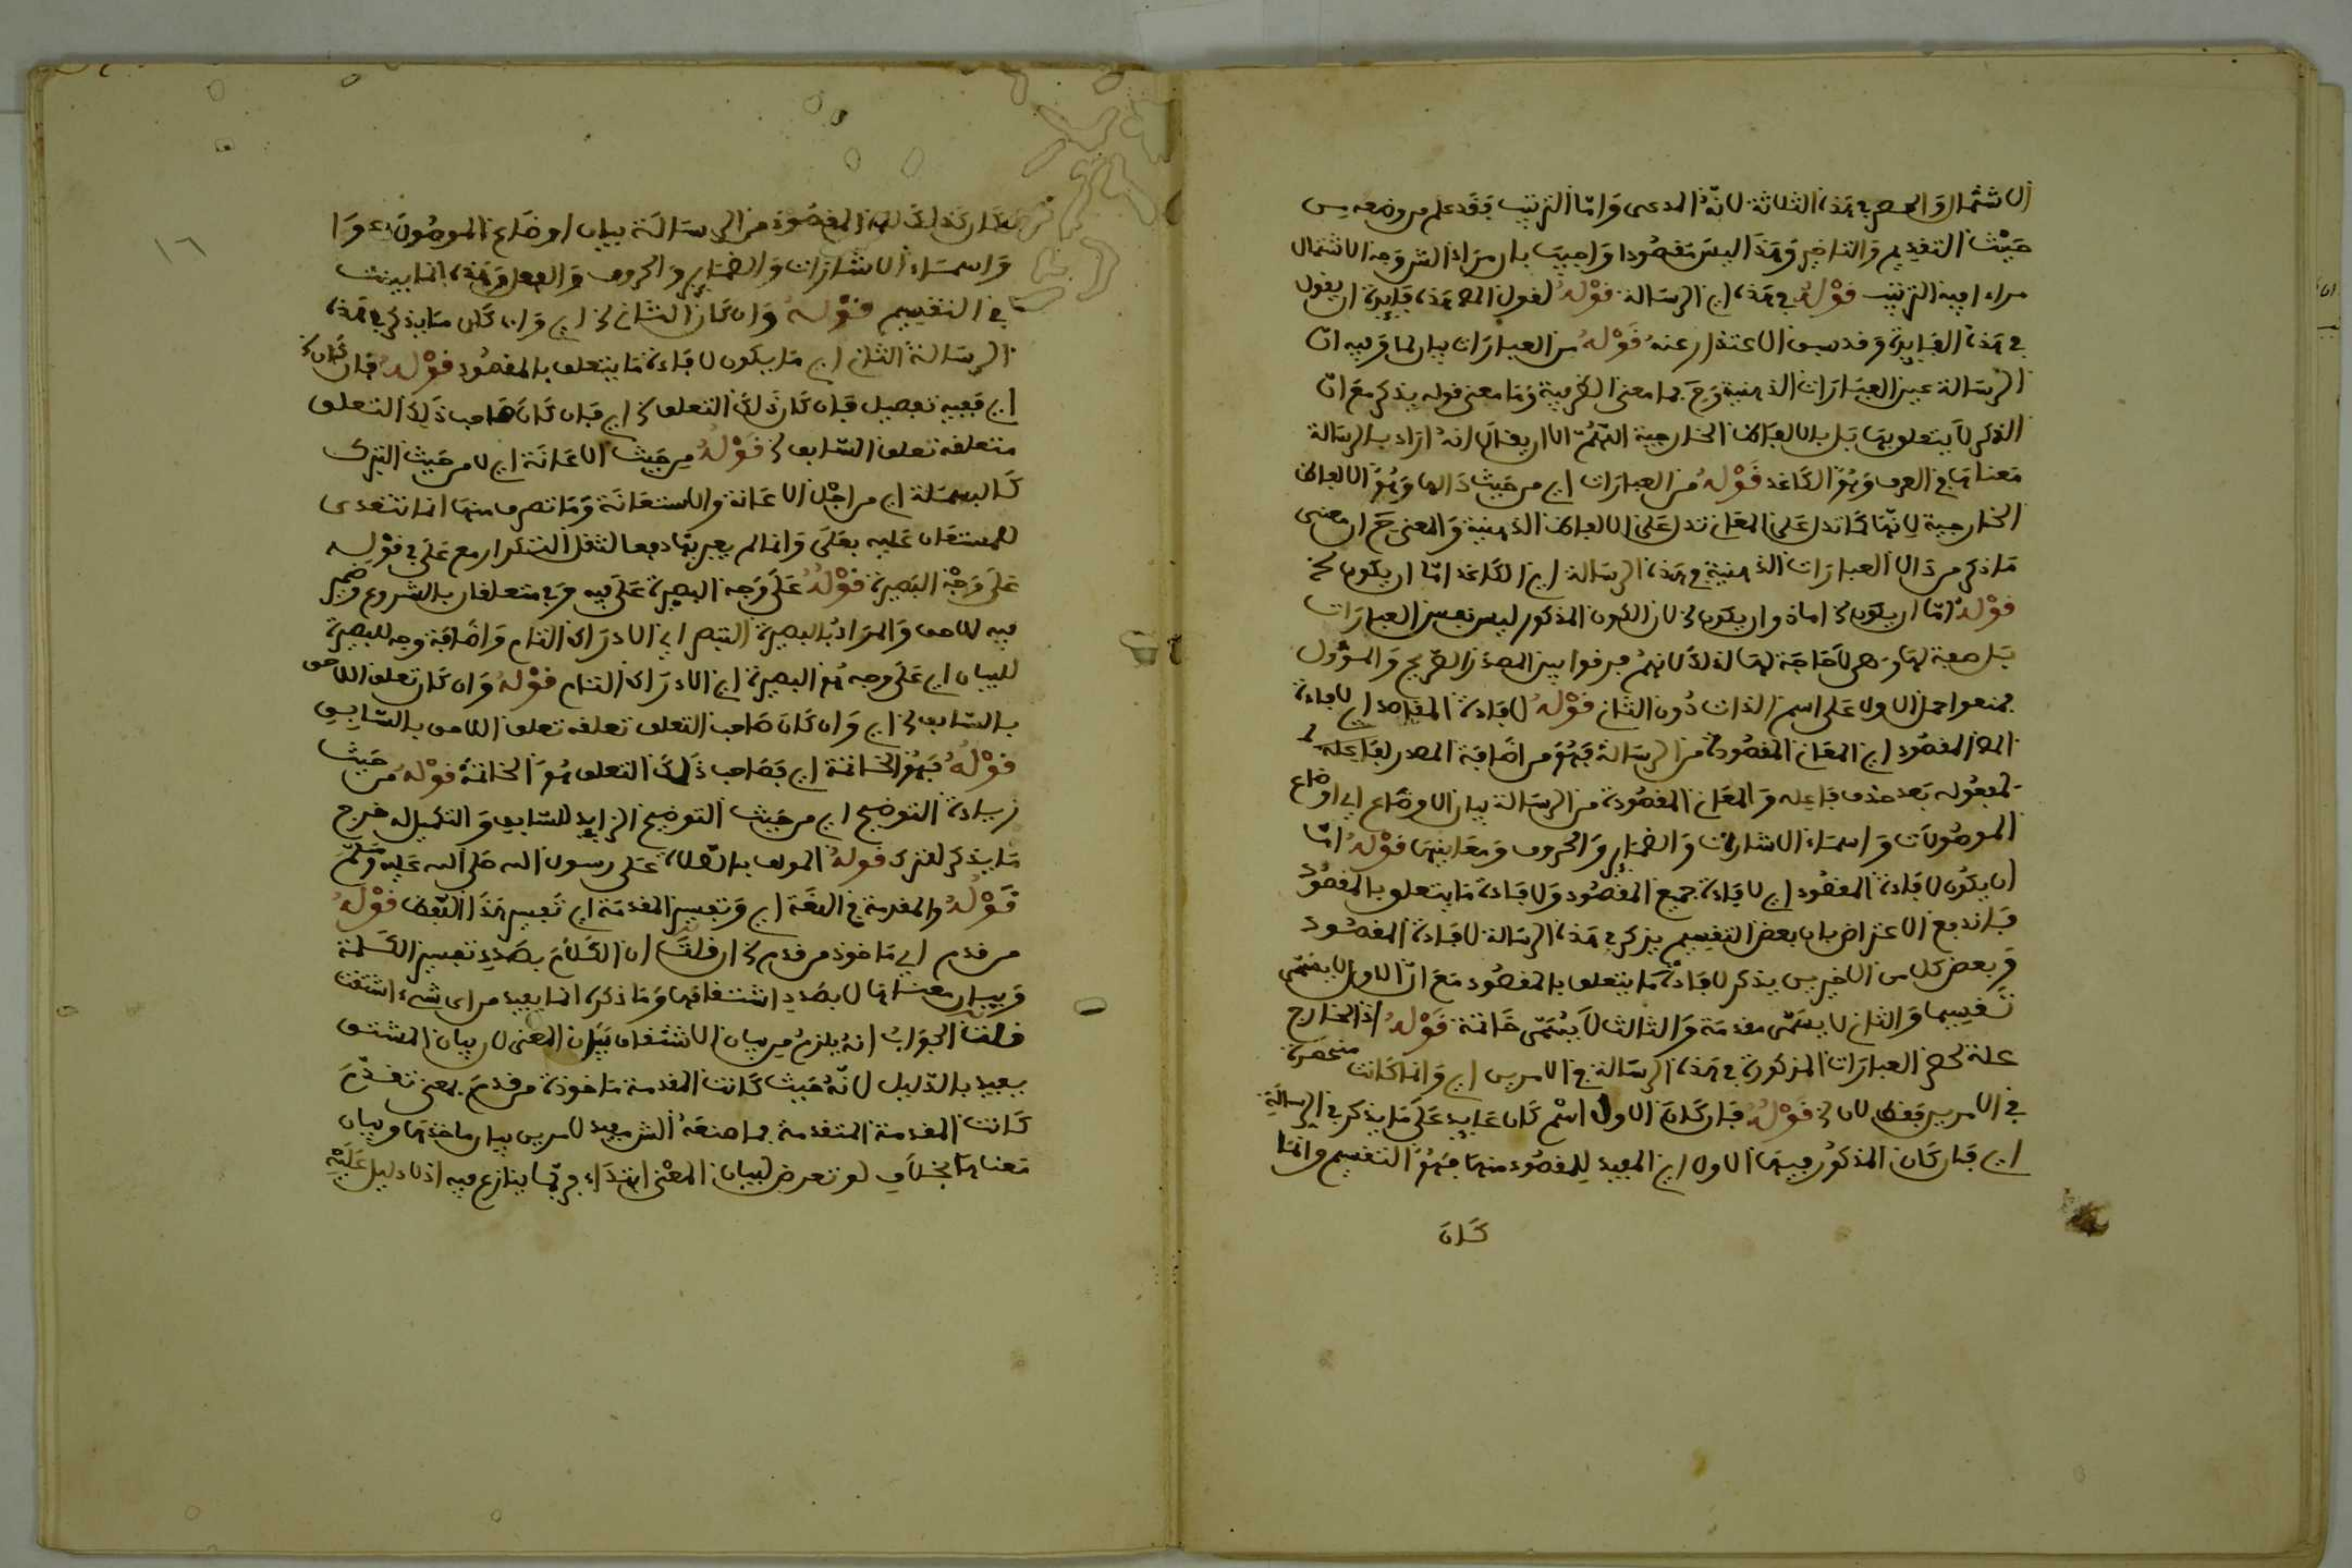 الاشتمال والحصر في هذه الثلاثة لانه المدعى واما الترتيب فقد علم من وضعه من
حيث التقديم والتاخير وهذا ليس مقصودا واجيب بان مراد الش وجه الاشتمال
مراعا فيه الترتيب قوله في هذه اي الرسالة قوله لقول المص هذه فايدة ان يقول
في هذه الفايدة وقد سبق الاعتذار عنه قوله من العبارات بيان لما وفيه ان
الرسالة عين العبارات الذهنية وح فما معنى الظرفية وما معنى قوله يذكر مع ان
الذكر لا يتعلق بها بل بالالفاظ الخارجية اللهم الا ان يقال انه اراد بالرسالة
معناها في العرف وهو الكاغد قوله من العبارات اي من حيث دالها وهو الالفاظ
الخارجية لانها كما تدل على المعاني تدل على الالفاظ الذهنية والمعنى ح ان معنى
ما ذكر من دال العبارات الذهنية في هذه الرسالة اي الكاغد اما ان يكون الخ
قوله اما ان يكون الخ اما ذو ان يكون الخ لان الكون المذكور ليس نفس العبارات
بل صفة لها وهي لا حاجة لها لذلك لانهم فرقوا بين المصدر الصريح والمؤول
فمنعوا حمل الاول على اسم الذات دون الثاني قوله لافادة المقاصد اي لافادة
المص المقصود اي المعاني المقصودة من الرسالة فهو من اضافة المصدر لفاعله
لمفعوله بعد حذف فاعله والمعاني المقصودة من الرسالة بيان الاوضاع اي اوضاع
الموصولات واسماء الاشارات والضماير والحروف ومعانيها قوله اما
ان يكون لافادة المقصود اي لافادة جميع المقصود ولافادة ما يتعلق بالمقصود
فاندفع الاعتراض بان بعض التقسيم يذكر في هذه الرسالة لافادة المقصود
وبعض كل من الاخيرين يذكر لافادة ما يتعلق بالمقصود مع ان الاول لا يسمى
تقسيما والثاني لا يسمى مقدمة والثالث لا يسمى خاتمة قوله اذ الخارج
علة لحصر العبارات المذكورة في هذه الرسالة في الامرين اي وانما كانت منحصرة
في الامرين فقط لان الخ قوله فان كان الاول اسم كان عايد على ما يذكر في الرسالة
اي فان كان المذكور فيها الاول اي المفيد للمقصود منها فهو التقسيم وانما
كان
كان كذلك لان المقصود من الرسالة بيان اوضاع الموصولات
واسماء الاشارات والضماير والحروف والفعل وهذه انما بينت
في التقسيم قوله وان كان الثاني الخ اي وان كان ما يذكر في هذه
الرسالة الثاني اي ما يكون لافادة ما يتعلق بالمقصود قوله فان كان الخ
اي ففيه تفصيل فان كان ذلك التعلق الخ اي فان كان صاحب ذلك التعلق
متعلقه تعلق السابق الخ قوله من حيث الاعانة اي لا من حيث التبرك
كالبسملة اي من اجل الاعانة والاستعانة وما تصرف منها انما تتعدى
للمستعان عليه بعلى وانما لم يعبر بها دفعا لثقل التكرار مع على في قوله
على وجه البصيرة قوله على وجه البصيرة على فيه وفي متعلقان بالشروع وضمير
فيه للاحق والمراد بالبصيرة التبصر اي الادراك التام واضافة وجه للبصيرة
للبيان اي على وجه هو البصيرة اي الادراك التام قوله وان كان تعلق اللاحق
بالسابق الخ اي وان كان صاحب التعلق تعلقه تعلق اللاحق بالسابق
قوله فهو الخاتمة اي فصاحب ذلك التعلق هو الخاتمة قوله من حيث
زيادة التوضيح اي من حيث التوضيح الزايد للسابق والتكميل له خرج
ما يذكر لغيره قوله المولف بالصلاة على رسول الله صلى الله عليه وسلم
قوله والمقدمة في اللغة اي وتفسير المقدمة اي تفسير هذا اللفظ قوله
من قدم اي ماخوذ من قدم الخ ان قلت ان الكلام بصدد تفسير الكلمة
وبيان معناها لا بصدد اشتقاقها وما ذكره انما يفيد من اي شيء اشتقت
قلت الجواب انه يلزم من بيان الاشتقاق بيان المعنى لان بيان المشتق
يفيد بالدليل لانه حيث كانت المقدمة ماخوذة من قدم بمعنى تقدم
كانت المقدمة المتقدمة فما صنعه الش مفيد لامرين بيان ماخذها وبيان
معناها بخلاف لو تعرض لبيان المعنى ابتداء فربما ينازع فيه اذ لا دليل عليه
١٦